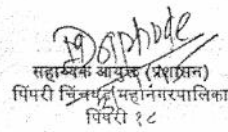 सहाय्यक आयुक्त (प्रशासन)
पिंपरी चिंचवड महानगरपालिका
पिंपरी १८